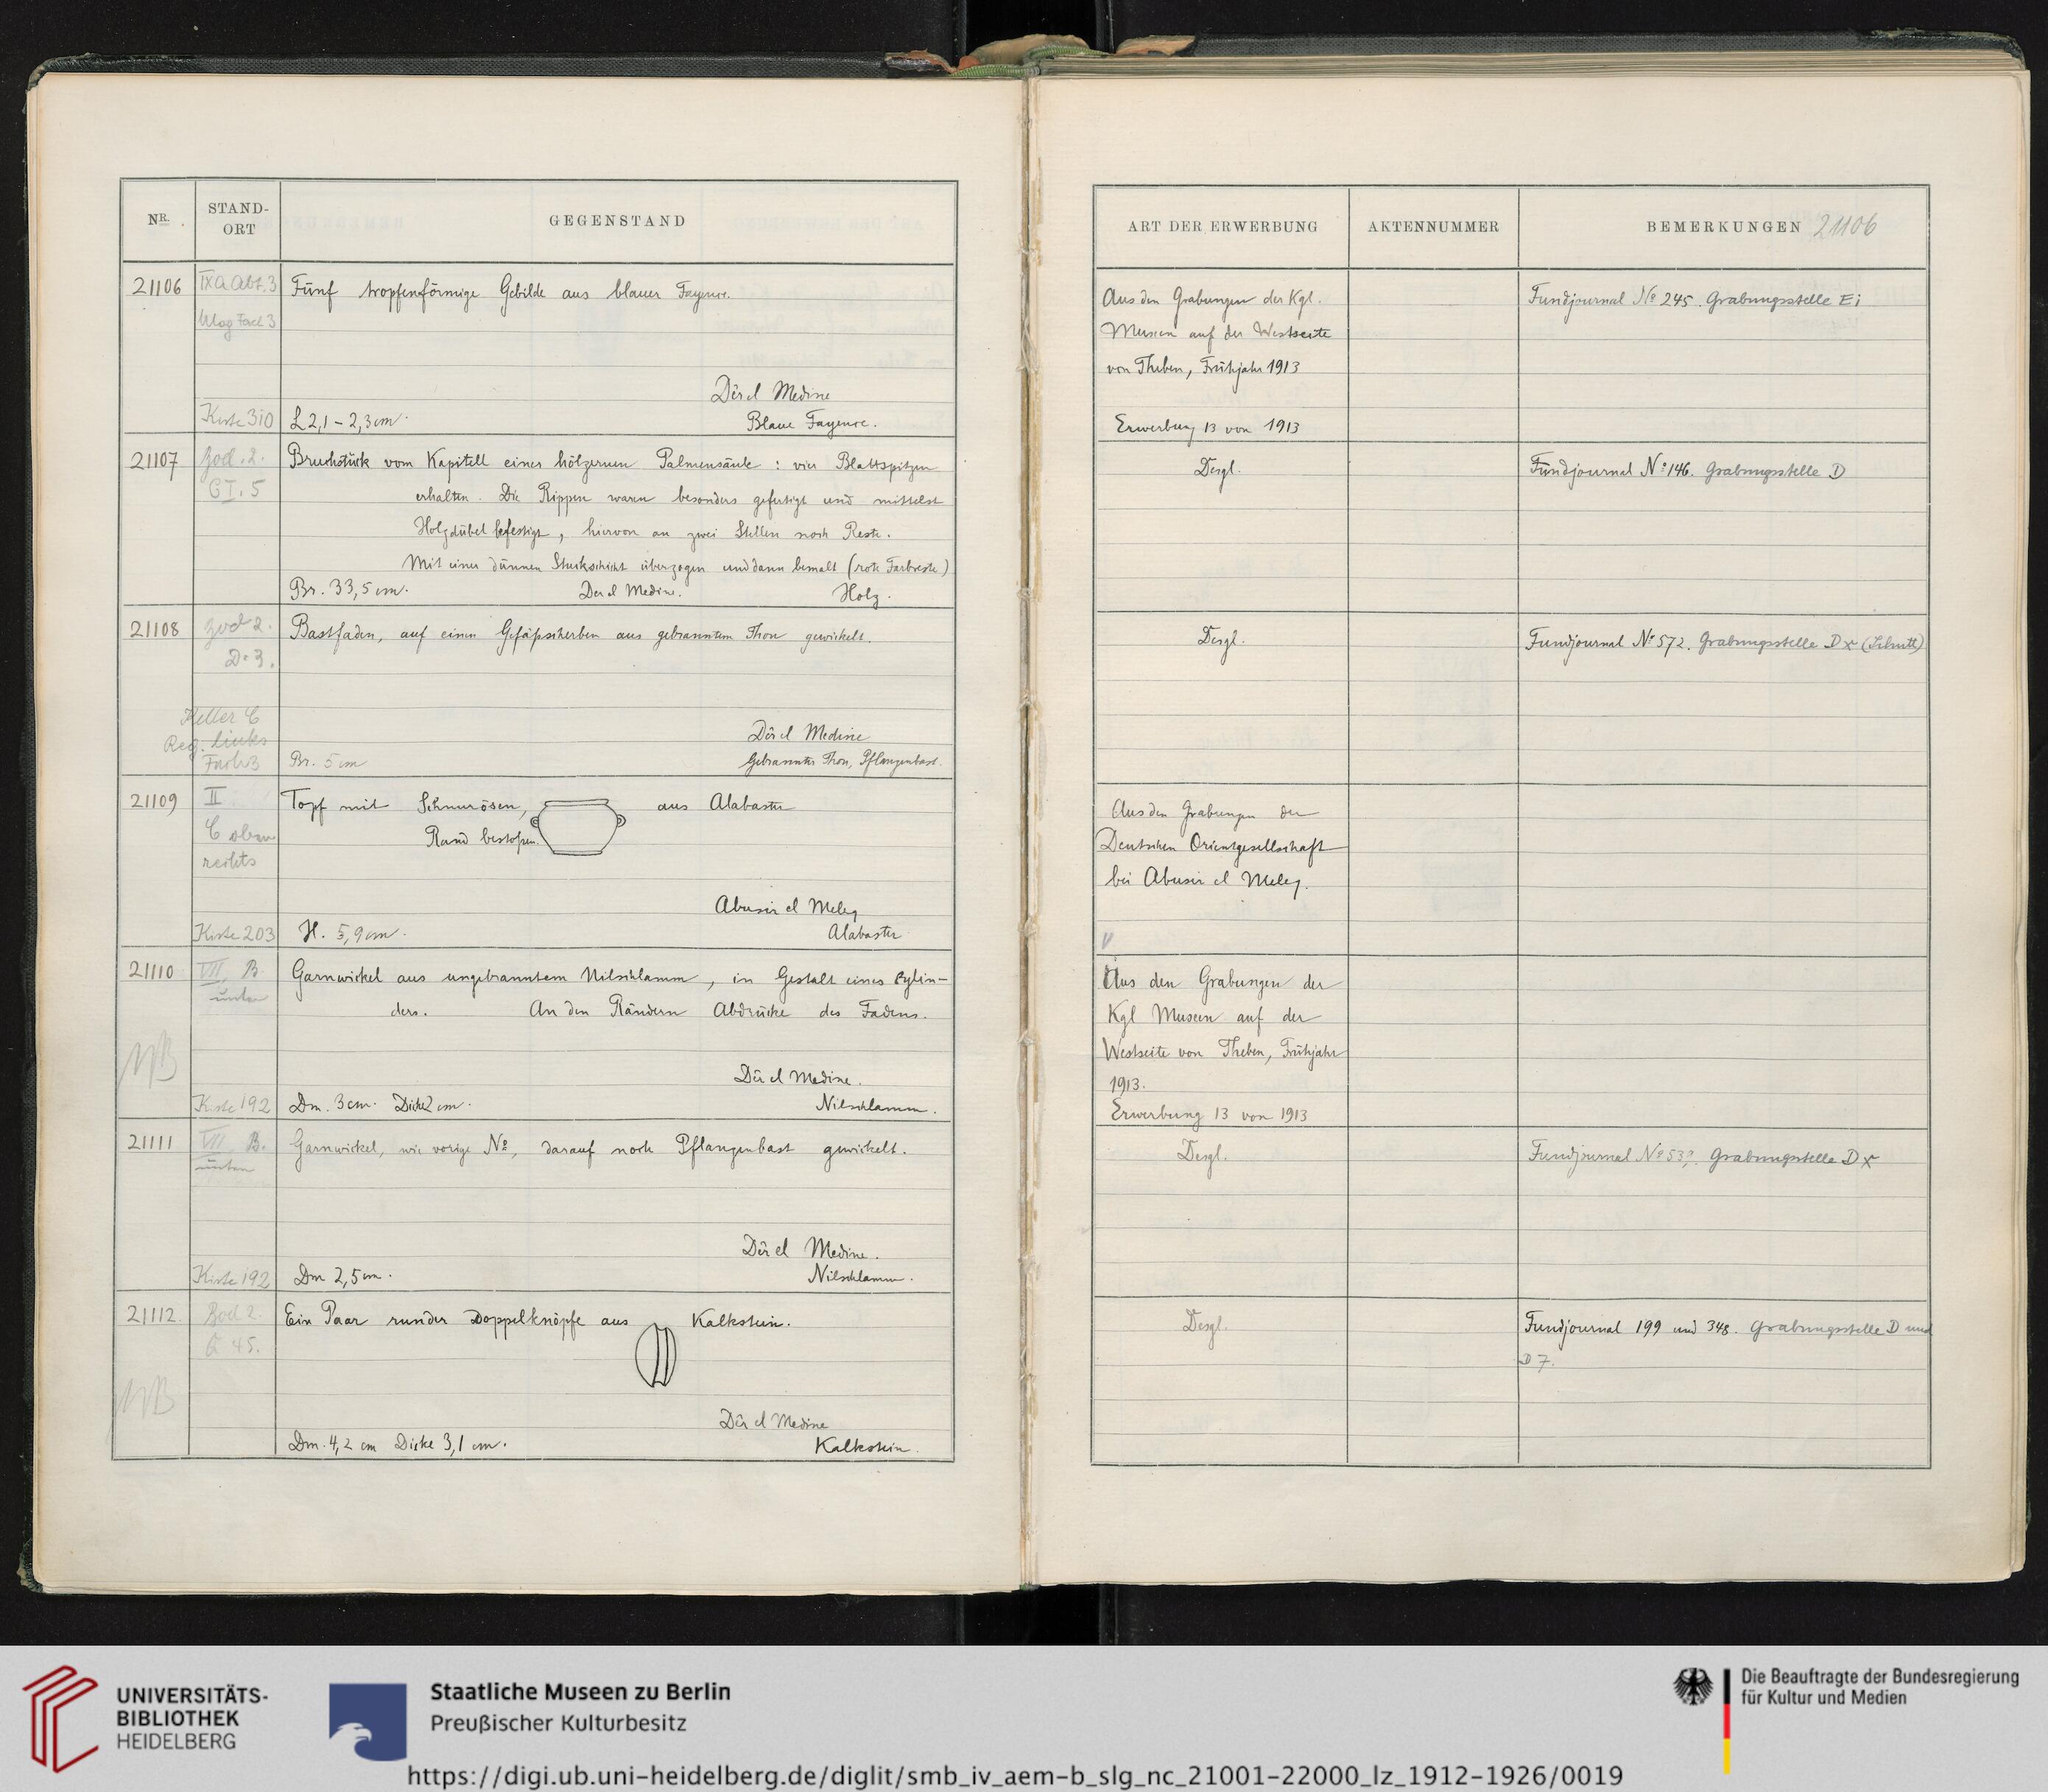 NR.
STAND-
ORT
GEGENSTAND
21106
IXa Abt. 3
Mag Fach 3
Fünf tropfenförmige Gebilde aus blauer Fayence.
Dêr el Medine
Kiste 310
L 2,1 – 2,3 cm.
Blaue Fayence.
21107
Bruchstück vom Kapitell einer hölzernen Palmensäule: vier Blattspitzen
erhalten. Die Rippen waren besonders gefertigt und mittelst
Holzdübel befestigt, hiervon an zwei Stellen noch Reste.
Mit einer dünnen Stuckschicht überzogen und dann bemalt (rote Farbreste)
Br. 33,5 cm.
Der el Medine.
Holz.
21108
Bastfaden, auf einen Gefäßscherben aus gebranntem Thon gewickelt.
Keller C
Reg. links
Fach 3
Dêr el Medine
Br. 5 cm
Gebrannter Thon, Pflanzenbast.
21109
II
C oben
rechts
Topf mit Schnurösen, aus Alabaster
Rand bestoßen.
Abusir el Meleq
Kiste 203
H. 5,9 cm.
Alabaster
21110
VII B
unten
Garnwickel aus ungebranntem Nilschlamm, in Gestalt eines Cylin-
ders. An den Rändern Abdrücke des Fadens.
Dêr el Medine.
Kiste 192
Dm. 3 cm. Dicke 2 cm.
Nilschlamm.
21111
VII B.
unten
Garnwickel, wie vorige Nº, darauf noch Pflanzenbast gewickelt.
Dêr el Medine.
Kiste 192
Dm 2,5 cm.
Nilschlamm.
21112.
Ein Paar runder Doppelknöpfe aus Kalkstein.
Dêr el Medine
Dm. 4,2 cm Dicke 3,1 cm.
Kalkstein.
ART DER ERWERBUNG
AKTENNUMMER
BEMERKUNGEN 21106
Aus den Grabungen der Kgl.
Museen auf der Westseite
von Theben, Frühjahr 1913
Erwerbung 13 von 1913
Fundjournal Nº 245. Grabungsstelle Ei
Desgl.
Fundjournal Nº 146. Grabungsstelle D
Desgl.
Fundjournal Nº 572. Grabungsstelle D x (Schutt)
Aus den Grabungen der
Deutschen Orientgesellschaft
bei Abusir el Meleq.
Aus den Grabungen der
Kgl Museen auf der
Westseite von Theben, Frühjahr
1913.
Erwerbung 13 von 1913
Desgl.
Fundjournal Nº 53?. Grabungsstelle D x
Desgl.
Fundjournal 199 und 348. Grabungsstelle D und
D 7.
UNIVERSITÄTS-
BIBLIOTHEK
HEIDELBERG
Staatliche Museen zu Berlin
Preußischer Kulturbesitz
Die Beauftragte der Bundesregierung
für Kultur und Medien
https://digi.ub.uni-heidelberg.de/diglit/smb_iv_aem-b_slg_nc_21001-22000_lz_1912-1926/0019